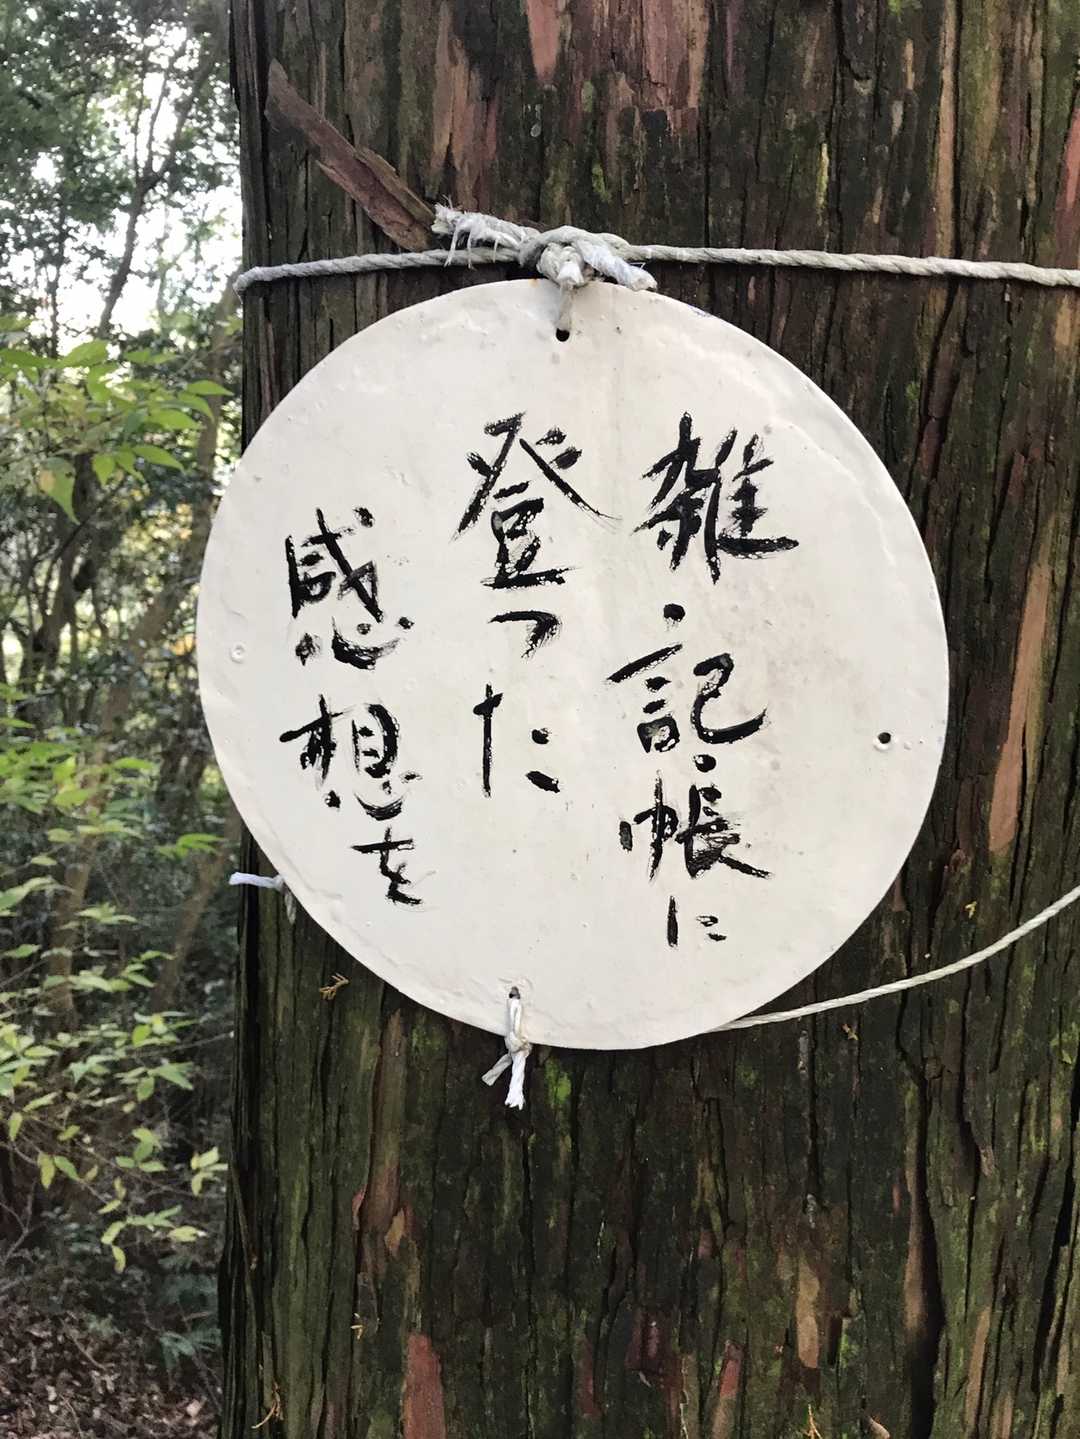 雑記帳に
登った
感想を